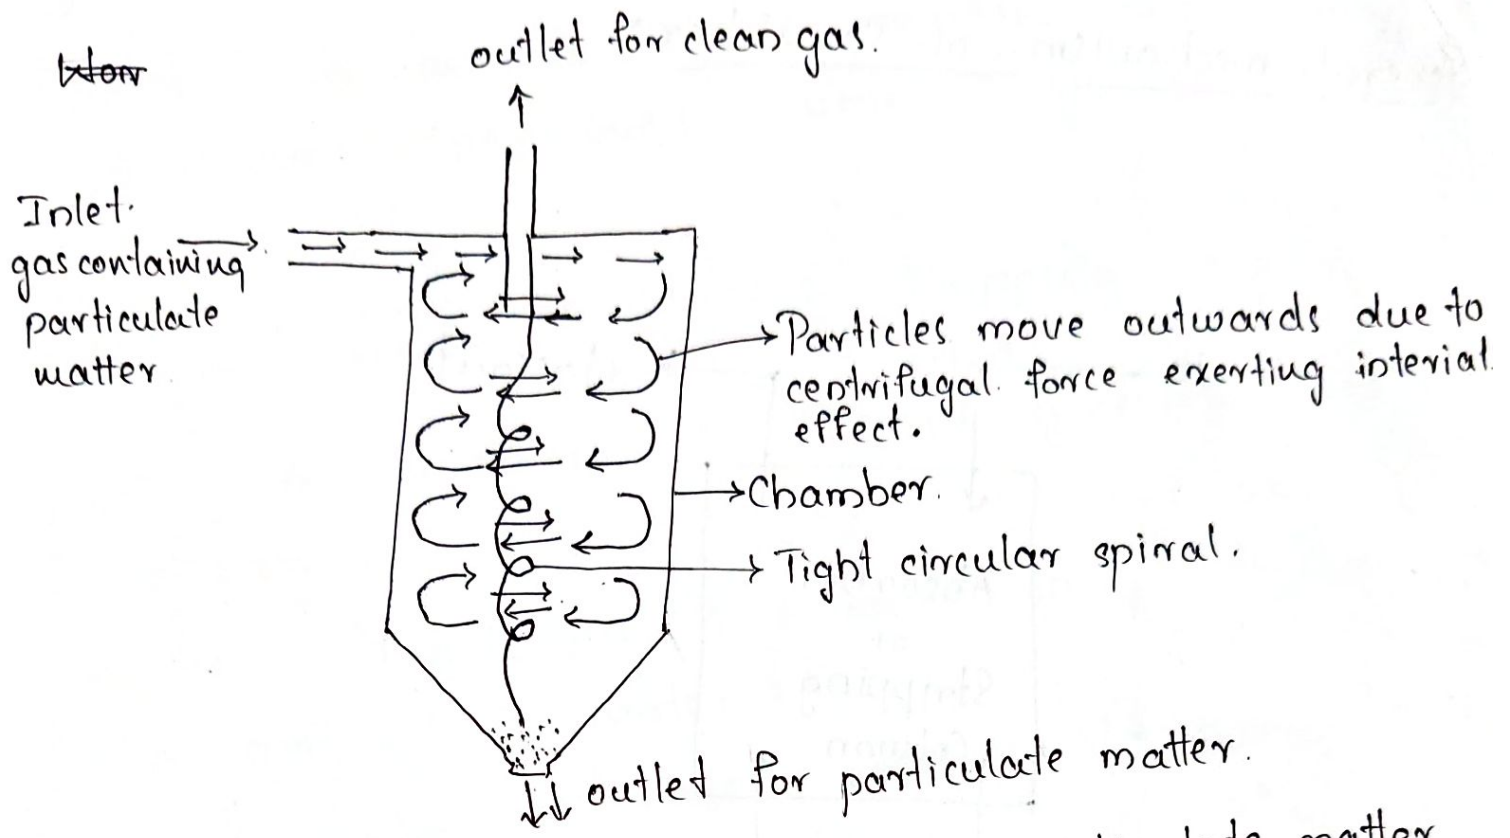 outlet for clean gas.
Inlet.
gas containing
particulate
matter
Particles move outwards due to
centrifugal force exerting interial
effect.
Chamber.
Tight circular spiral.
outlet for particulate matter.
matter